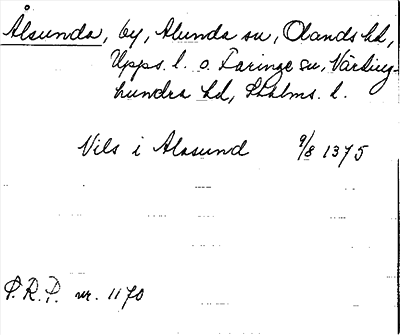 Ålsunda, by, Alunda sn, Olands hd,
Upps. l. o. Faringe sn, Närding-
hundra hd, Sthlms. l.
Nils i Alasund 9/8 1375
P.R.P. nr. 1170